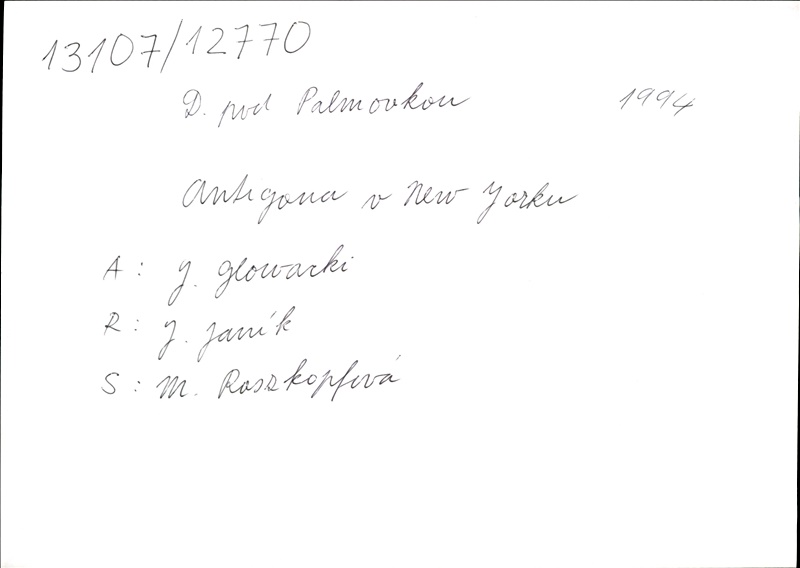 13107/12770
D. pod Palmovkou 1994
Antigona v New Yorku
A: J. Glowacki
R: J. Janík
S: M. Roszkopfová